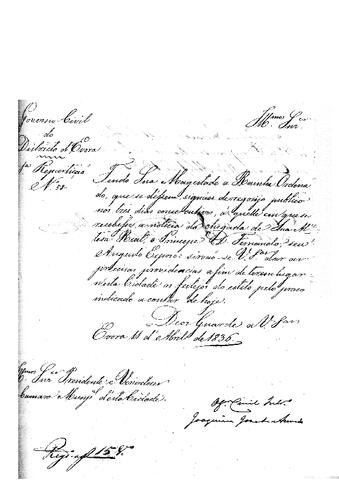 Governo Civil
do
Districto d'Evora
Repartição
Nº
Illmos Snrs
Tendo Sua Magestade a Rainha Ordena
do, que se dessem signaes de regozijo publico
nos tres dias consecutivos, á quelle em que se
recebesse, a noticia da chegada de Sua Al
teza Real, o Principe D. Fernando, seu
Augusto Esposo: sirvão-se V. Sas dar as
precisas providencias a fim de terem lugar
nesta Cidade os festejos do estilo pelo prazo
indicado a contar de hoje.
Deos Guarde a V. Sas
Evora 11 d'Abril de 1836
Snr Presidente e Vereadores
Camara Munipl desta Cidade
Civil
Joaquim
Regda af 158